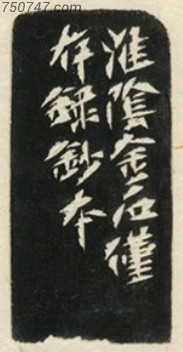 750747.com
淮陰金石僅
存録鈔本